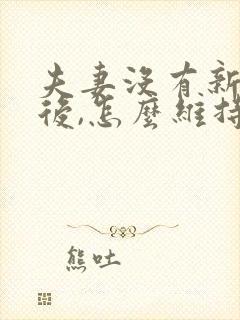 夫妻沒有新
後,怎麼維持
熊吐